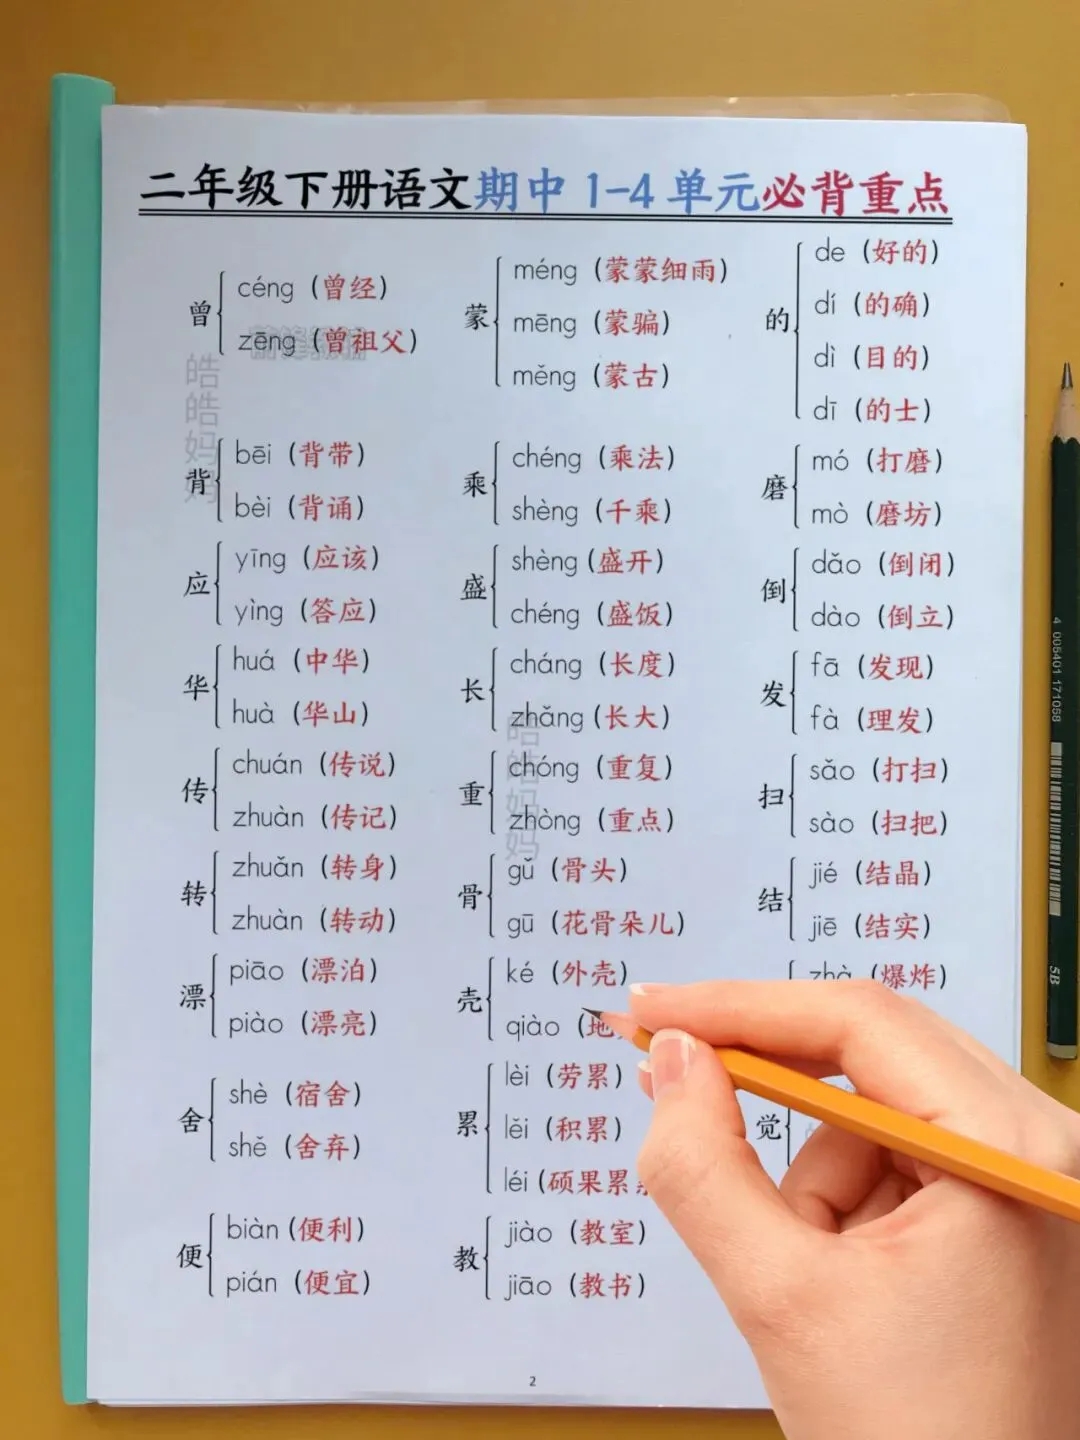 二年级下册语文期中1-4单元必背重点
曾
céng (曾经)
zēng (曾祖父)
蒙
méng (蒙蒙细雨)
mēng (蒙骗)
měng (蒙古)
的
de (好的)
dí (的确)
dì (目的)
dī (的士)
背
bēi (背带)
bèi (背诵)
乘
chéng (乘法)
shèng (千乘)
磨
mó (打磨)
mò (磨坊)
应
yīng (应该)
yìng (答应)
盛
shèng (盛开)
chéng (盛饭)
倒
dǎo (倒闭)
dào (倒立)
华
huá (中华)
huà (华山)
长
cháng (长度)
zhǎng (长大)
发
fā (发现)
fà (理发)
传
chuán (传说)
zhuàn (传记)
重
chóng (重复)
zhòng (重点)
扫
sǎo (打扫)
sào (扫把)
转
zhuǎn (转身)
zhuàn (转动)
骨
gǔ (骨头)
gū (花骨朵儿)
结
jié (结晶)
jiē (结实)
漂
piāo (漂泊)
piào (漂亮)
壳
ké (外壳)
qiào (地
zhà (爆炸)
舍
shè (宿舍)
shě (舍弃)
累
lèi (劳累)
lěi (积累)
léi (硕果累
觉
便
biàn (便利)
pián (便宜)
教
jiào (教室)
jiāo (教书)
2
皓皓妈妈
皓皓妈妈
4 005401 171058
5B